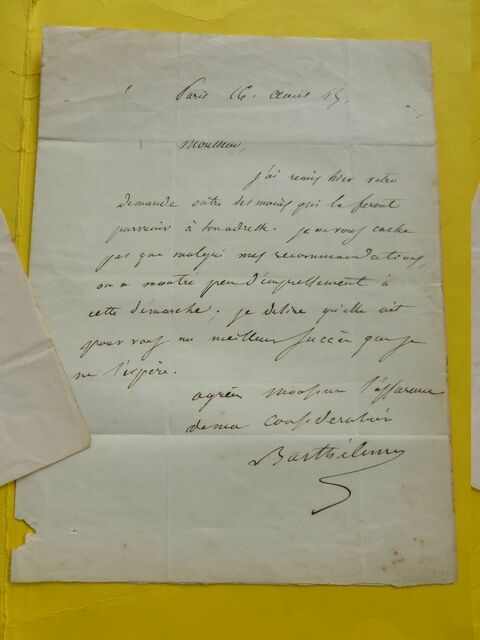 Paris 16. Aout 45.
Monsieur,
j'ai remis hier votre
demande entre des mains qui la feront
parvenir à son adresse. je ne vous cache
pas que malgré mes recommandations
on a montré peu d'empressement à
cette démarche; je desire qu'elle ait
pour vous un meilleur succès que je
ne l'espère.
agréez Monsieur l'assurance
de ma consideration
Barthélemy